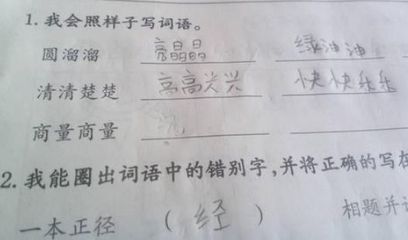 1. 我会照样子写词语。
圆溜溜 亮晶晶 绿油油
清清楚楚 高高兴兴 快快乐乐
商量商量
2. 我能圈出词语中的错别字,并将正确的写在
一本正径 (经) 相题并